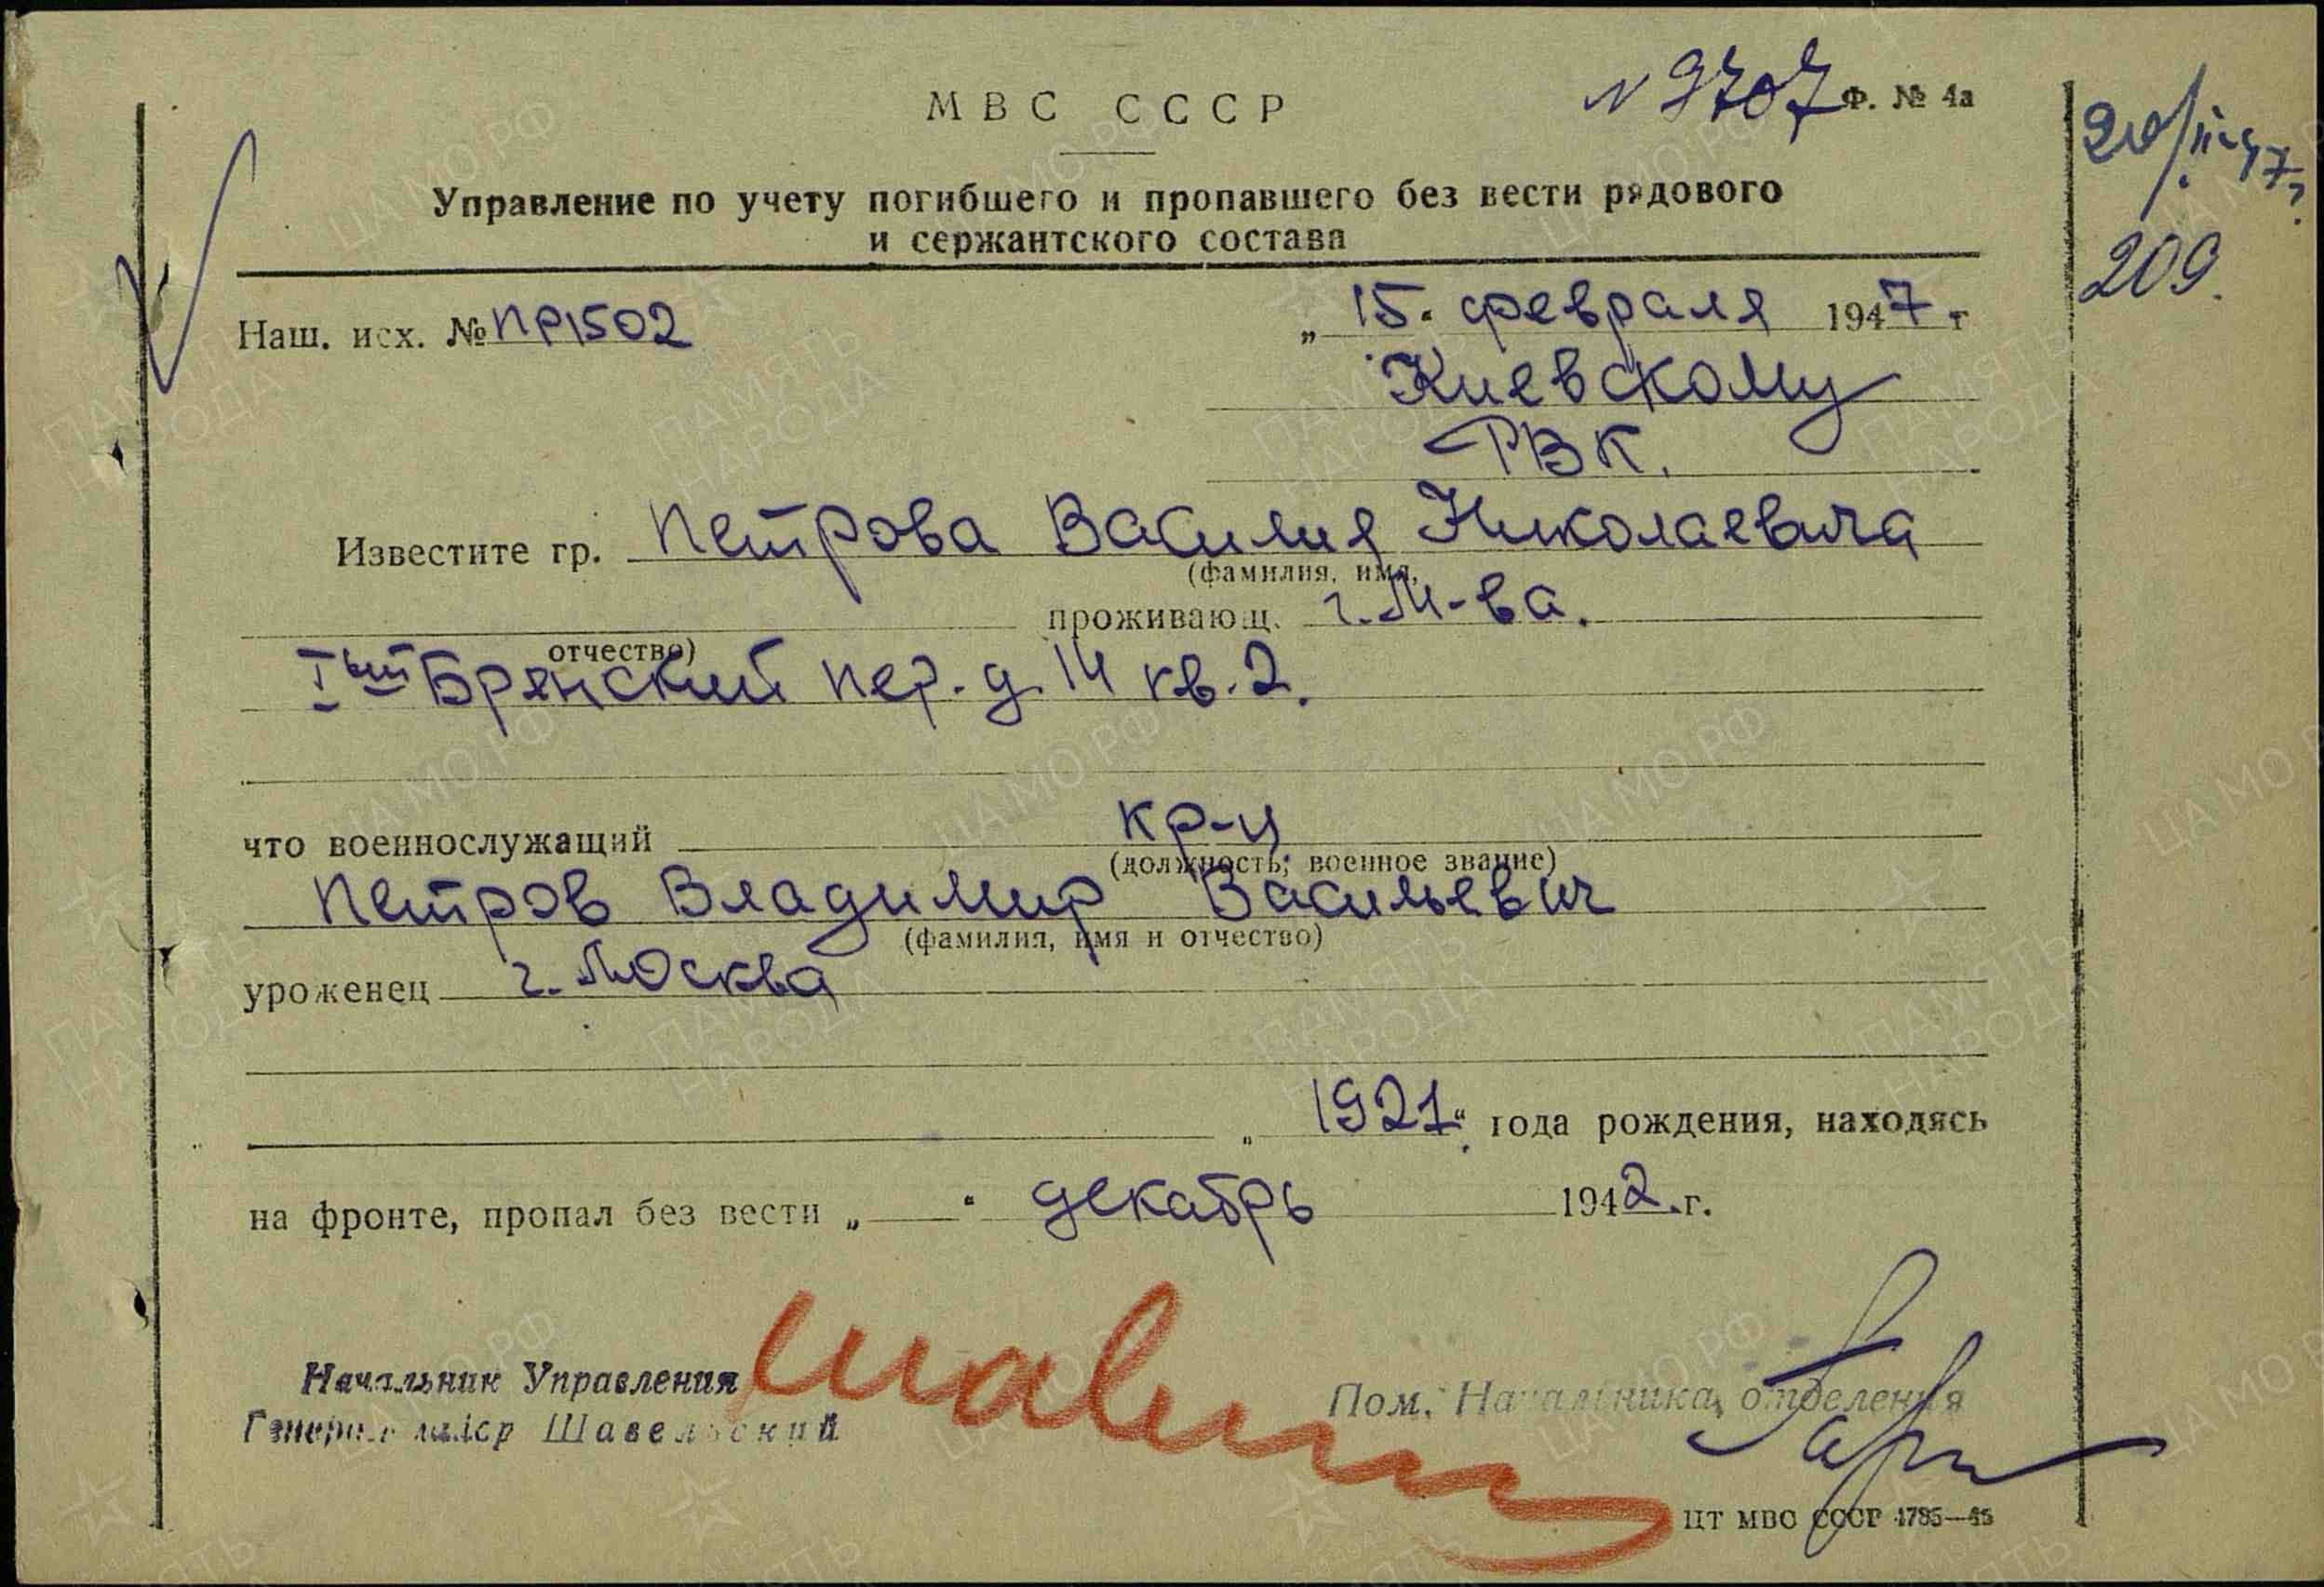 МВС СССР
N 9707 Ф. № 4а
Управление по учету погибшего и пропавшего без вести рядового
и сержантского состава
209.
Наш. исх. № пр1502
„ 15. февраля 1947 г
Киевскому
РВК.
Известите гр. Петрова Василия Николаевича
(фамилия, имя,
проживающ. г. М-ва.
отчество)
Iый Брянский пер. д. 14 кв. 2.
что военнослужащий кр-ц
(должность, военное звание)
Петров Владимир Васильевич
(фамилия, имя и отчество)
уроженец г. Москва
„ 1921 “ года рождения, находясь
на фронте, пропал без вести „ “ декабрь 1942 г.
Начальник Управления
Генерал майор Шавельский
Пом. Начальника отделения
ЦТ МВС СССР